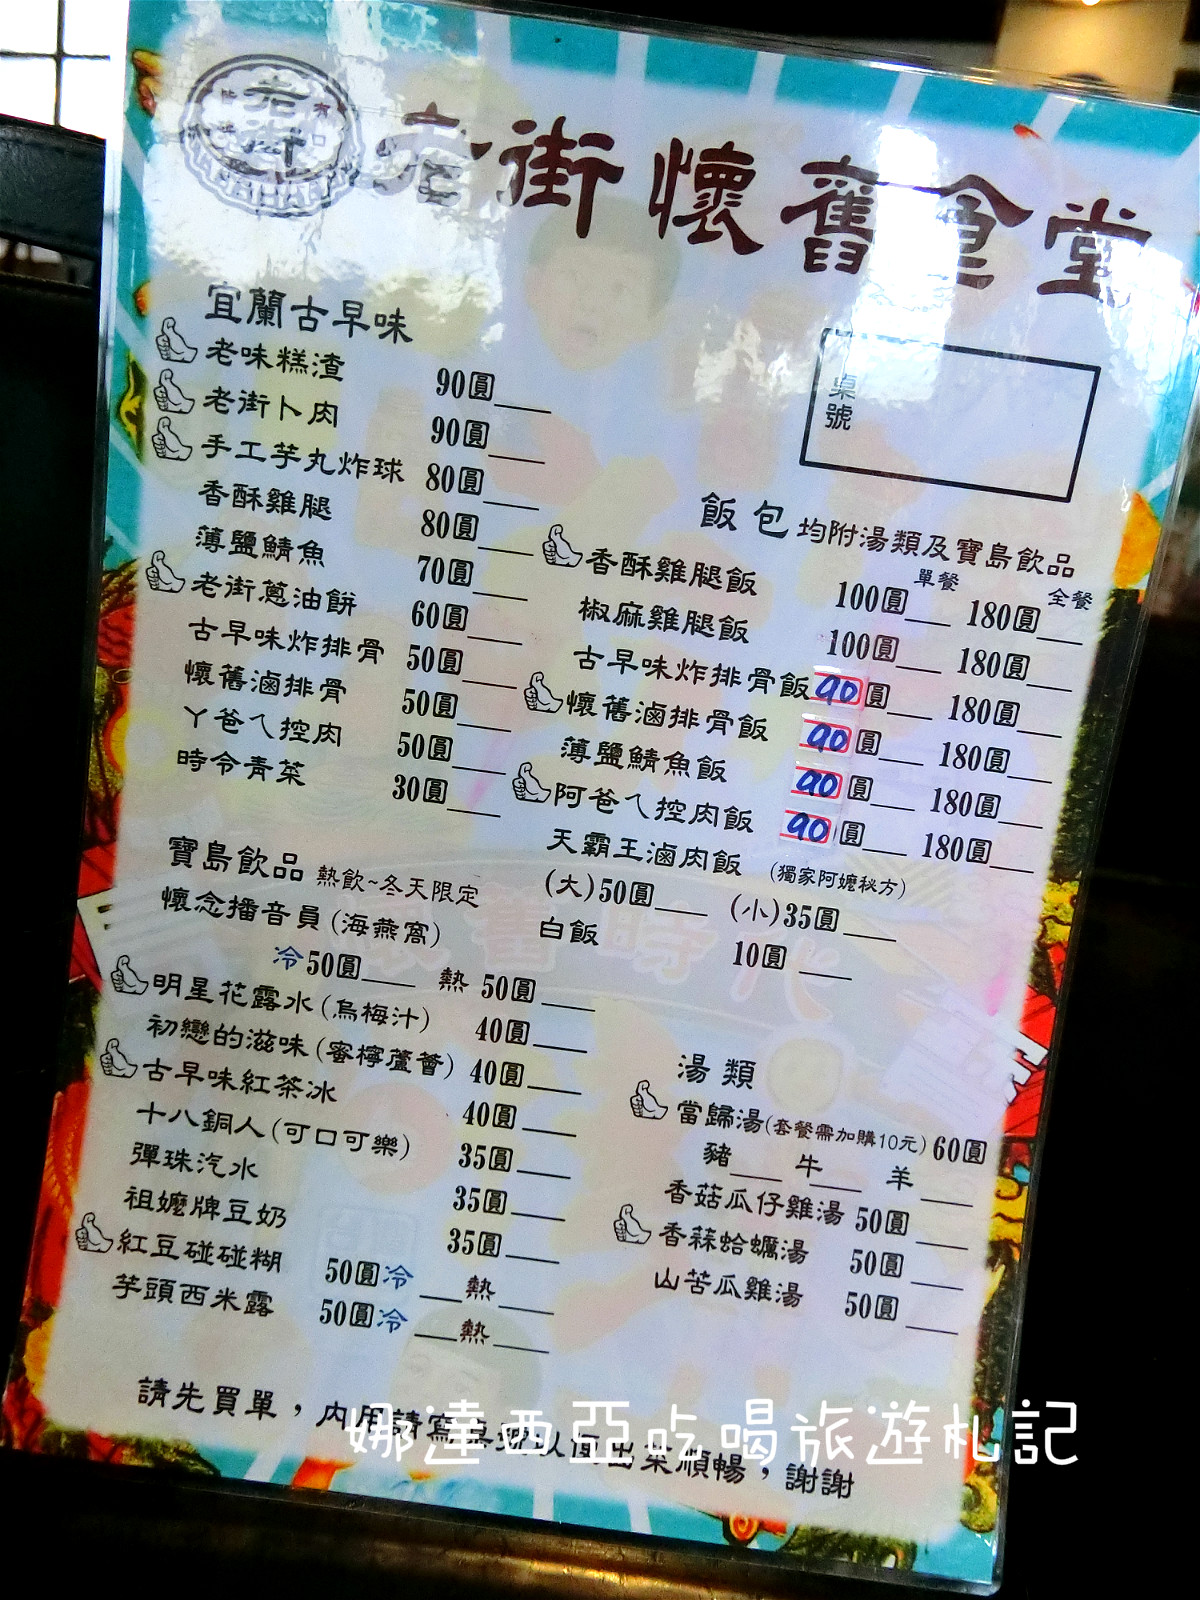 老街
老街懷舊食堂
桌號
宜蘭古早味
老味糕渣 90圓
老街卜肉 90圓
手工芋丸炸球 80圓
香酥雞腿 80圓
薄鹽鯖魚 70圓
老街蔥油餅 60圓
古早味炸排骨 50圓
懷舊滷排骨 50圓
丫爸ㄟ控肉 50圓
時令青菜 30圓
飯包 均附湯類及寶島飲品
單餐 全餐
香酥雞腿飯 100圓 180圓
椒麻雞腿飯 100圓 180圓
古早味炸排骨飯 90圓 180圓
懷舊滷排骨飯 90圓 180圓
薄鹽鯖魚飯 90圓 180圓
阿爸ㄟ控肉飯 90圓 180圓
天霸王滷肉飯 (獨家阿嬤秘方)
(大)50圓 (小)35圓
白飯 10圓
寶島飲品 熱飲~冬天限定
懷念播音員(海燕窩)
冷50圓 熱50圓
明星花露水(烏梅汁) 40圓
初戀的滋味(蜜檸蘆薈) 40圓
古早味紅茶冰 40圓
十八銅人(可口可樂) 35圓
彈珠汽水 35圓
祖嬤牌豆奶 35圓
紅豆碰碰糊 50圓冷 熱
芋頭西米露 50圓冷 熱
湯類
當歸湯(套餐需加購10元)60圓
豬 牛 羊
香菇瓜仔雞湯 50圓
香蒜蛤蠣湯 50圓
山苦瓜雞湯 50圓
懷舊時代
請先買單，內用請寫桌號以便出菜順暢，謝謝
娜達西亞吃喝旅遊札記